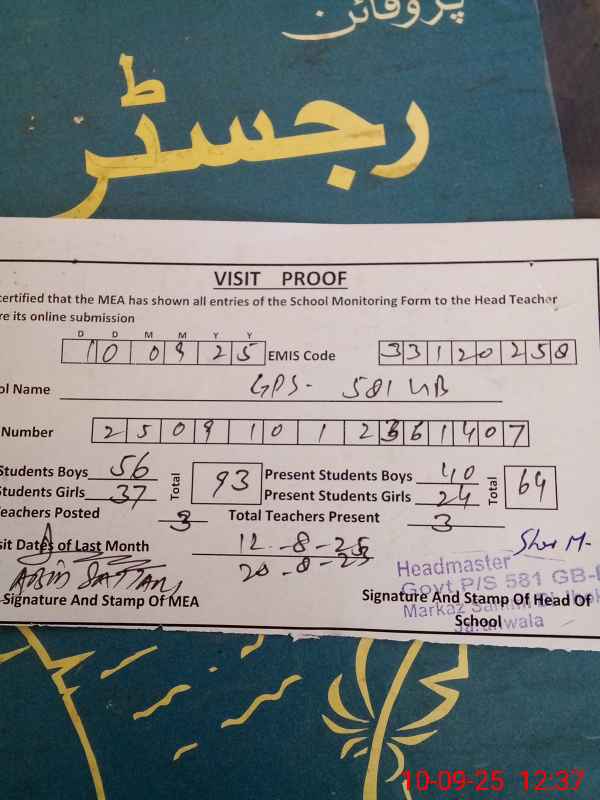 پروفائن
رجسٹر
VISIT PROOF
certified that the MEA has shown all entries of the School Monitoring Form to the Head Teacher
re its online submission
D D M M Y Y
10 09 25 EMIS Code 33120258
ol Name GPS- 581 GB
Number 2509101236 1407
Students Boys 56 Total 93 Present Students Boys 40 Total 64
Students Girls 37 Present Students Girls 24
eachers Posted 3 Total Teachers Present 3
sit Dates of Last Month 12-8-25
20-8-25
ABID SATTAR
Signature And Stamp Of MEA
Sher M-
Headmaster
Govt P/S 581 GB-
Markaz
Jaranwala
Signature And Stamp Of Head Of
School
10-09-25 12:37